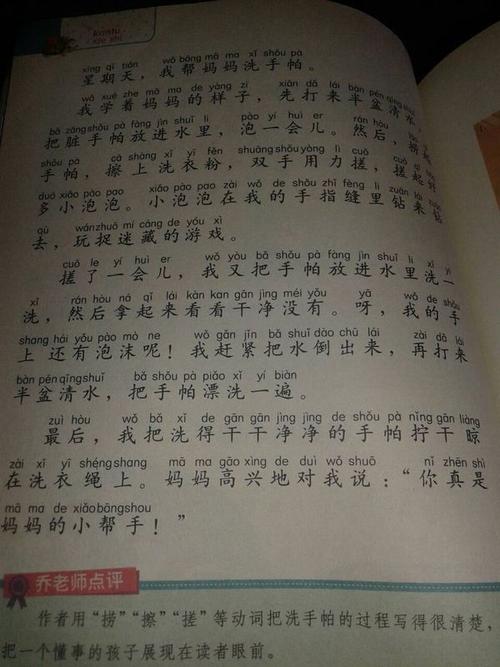 xīng qī tiān wǒ bāng mā ma xǐ shǒu pà
星期天，我帮妈妈洗手帕。
wǒ xué zhe mā ma de yàng zi xiān dǎ lái bàn pén qīng shuǐ
我学着妈妈的样子，先打来半盆清水
bǎ zāng shǒu pà fàng jìn shuǐ lǐ pào yí huì er rán hòu
把脏手帕放进水里，泡一会儿。然后，捞起
shǒu pà cā shàng xǐ yī fěn shuāng shǒu yòng lì cuō cuō qǐ
手帕，擦上洗衣粉，双手用力搓，搓起
duō xiǎo pào pao xiǎo pào pao zài wǒ de shǒu zhǐ fèng lǐ zuān lái zuān
多小泡泡。小泡泡在我的手指缝里钻来钻
qù wán zhuō mí cáng de yóu xì
去，玩捉迷藏的游戏。
cuō le yí huì er wǒ yòu bǎ shǒu pà fàng jìn shuǐ lǐ xǐ yi
搓了一会儿，我又把手帕放进水里洗一
xǐ rán hòu ná qǐ lái kàn kan gān jìng méi yǒu yā wǒ de shǒu
洗，然后拿起来看看干净没有。呀，我的手
shang hái yǒu pào mò ne wǒ gǎn jǐn bǎ shuǐ dào chū lái zài dǎ lái
上还有泡沫呢！我赶紧把水倒出来，再打来
bàn pén qīng shuǐ bǎ shǒu pà piǎo xǐ yí biàn
半盆清水，把手帕漂洗一遍。
zuì hòu wǒ bǎ xǐ de gān gān jìng jìng de shǒu pà nǐng gān liàng
最后，我把洗得干干净净的手帕拧干晾
zài xǐ yī shéng shang mā ma gāo xìng de duì wǒ shuō nǐ zhēn shì
在洗衣绳上。妈妈高兴地对我说：“你真是
mā ma de xiǎo bāng shou
妈妈的小帮手！”
乔老师点评
作者用“捞”“擦”“搓”等动词把洗手帕的过程写得很清楚，
把一个懂事的孩子展现在读者眼前。